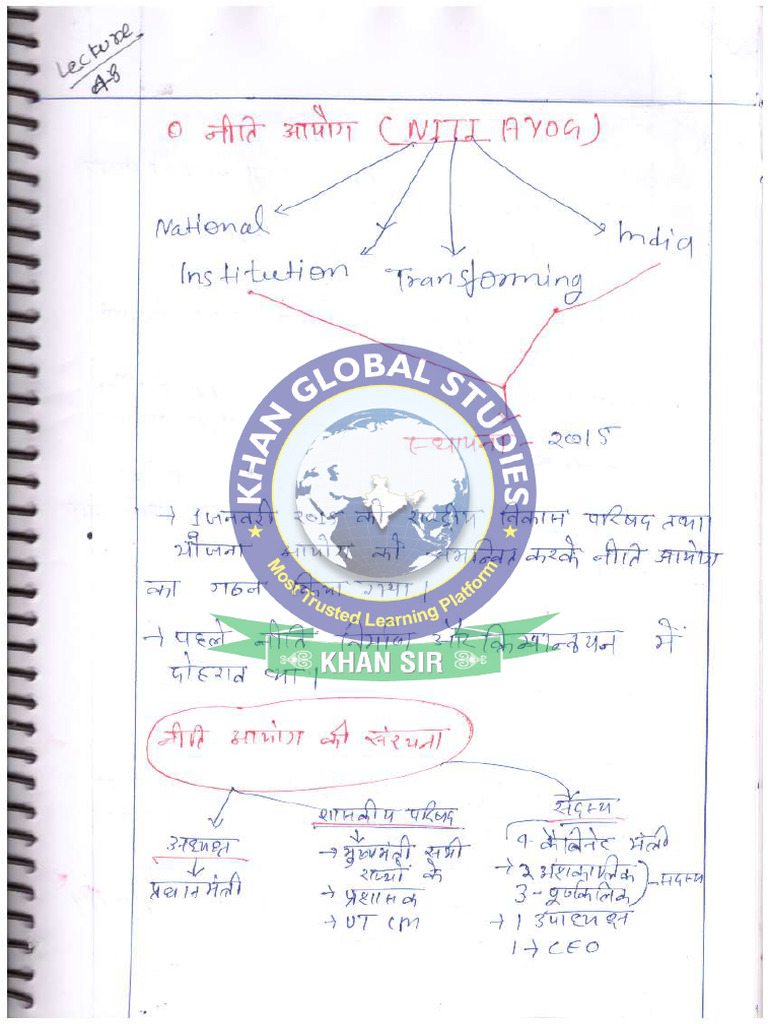 Lecture
48
० नीति आयोग (NITI AYOG)
National
India
Institution
Transforming
KHAN GLOBAL STUDIES
स्थापना - २०१५
→ 1 जनवरी २०१५ को राष्ट्रीय विकास परिषद तथा
योजना आयोग को समन्वित करके नीति आयोग
का गठन किया गया।
Most Trusted Learning Platform
→ पहले नीति निर्माण और क्रियान्वयन में
KHAN SIR
दोहराव था।
नीति आयोग की संरचना
अध्यक्ष
प्रधानमंत्री
शासकीय परिषद
→ मुख्यमंत्री सभी
राज्यों के
→ प्रशासक
→ UT CM
सदस्य
कैबिनेट मंत्री
→ 2 अंशकालिक
3 - पूर्णकालिक
सदस्य
→ 1 उपाध्यक्ष
1 → CEO